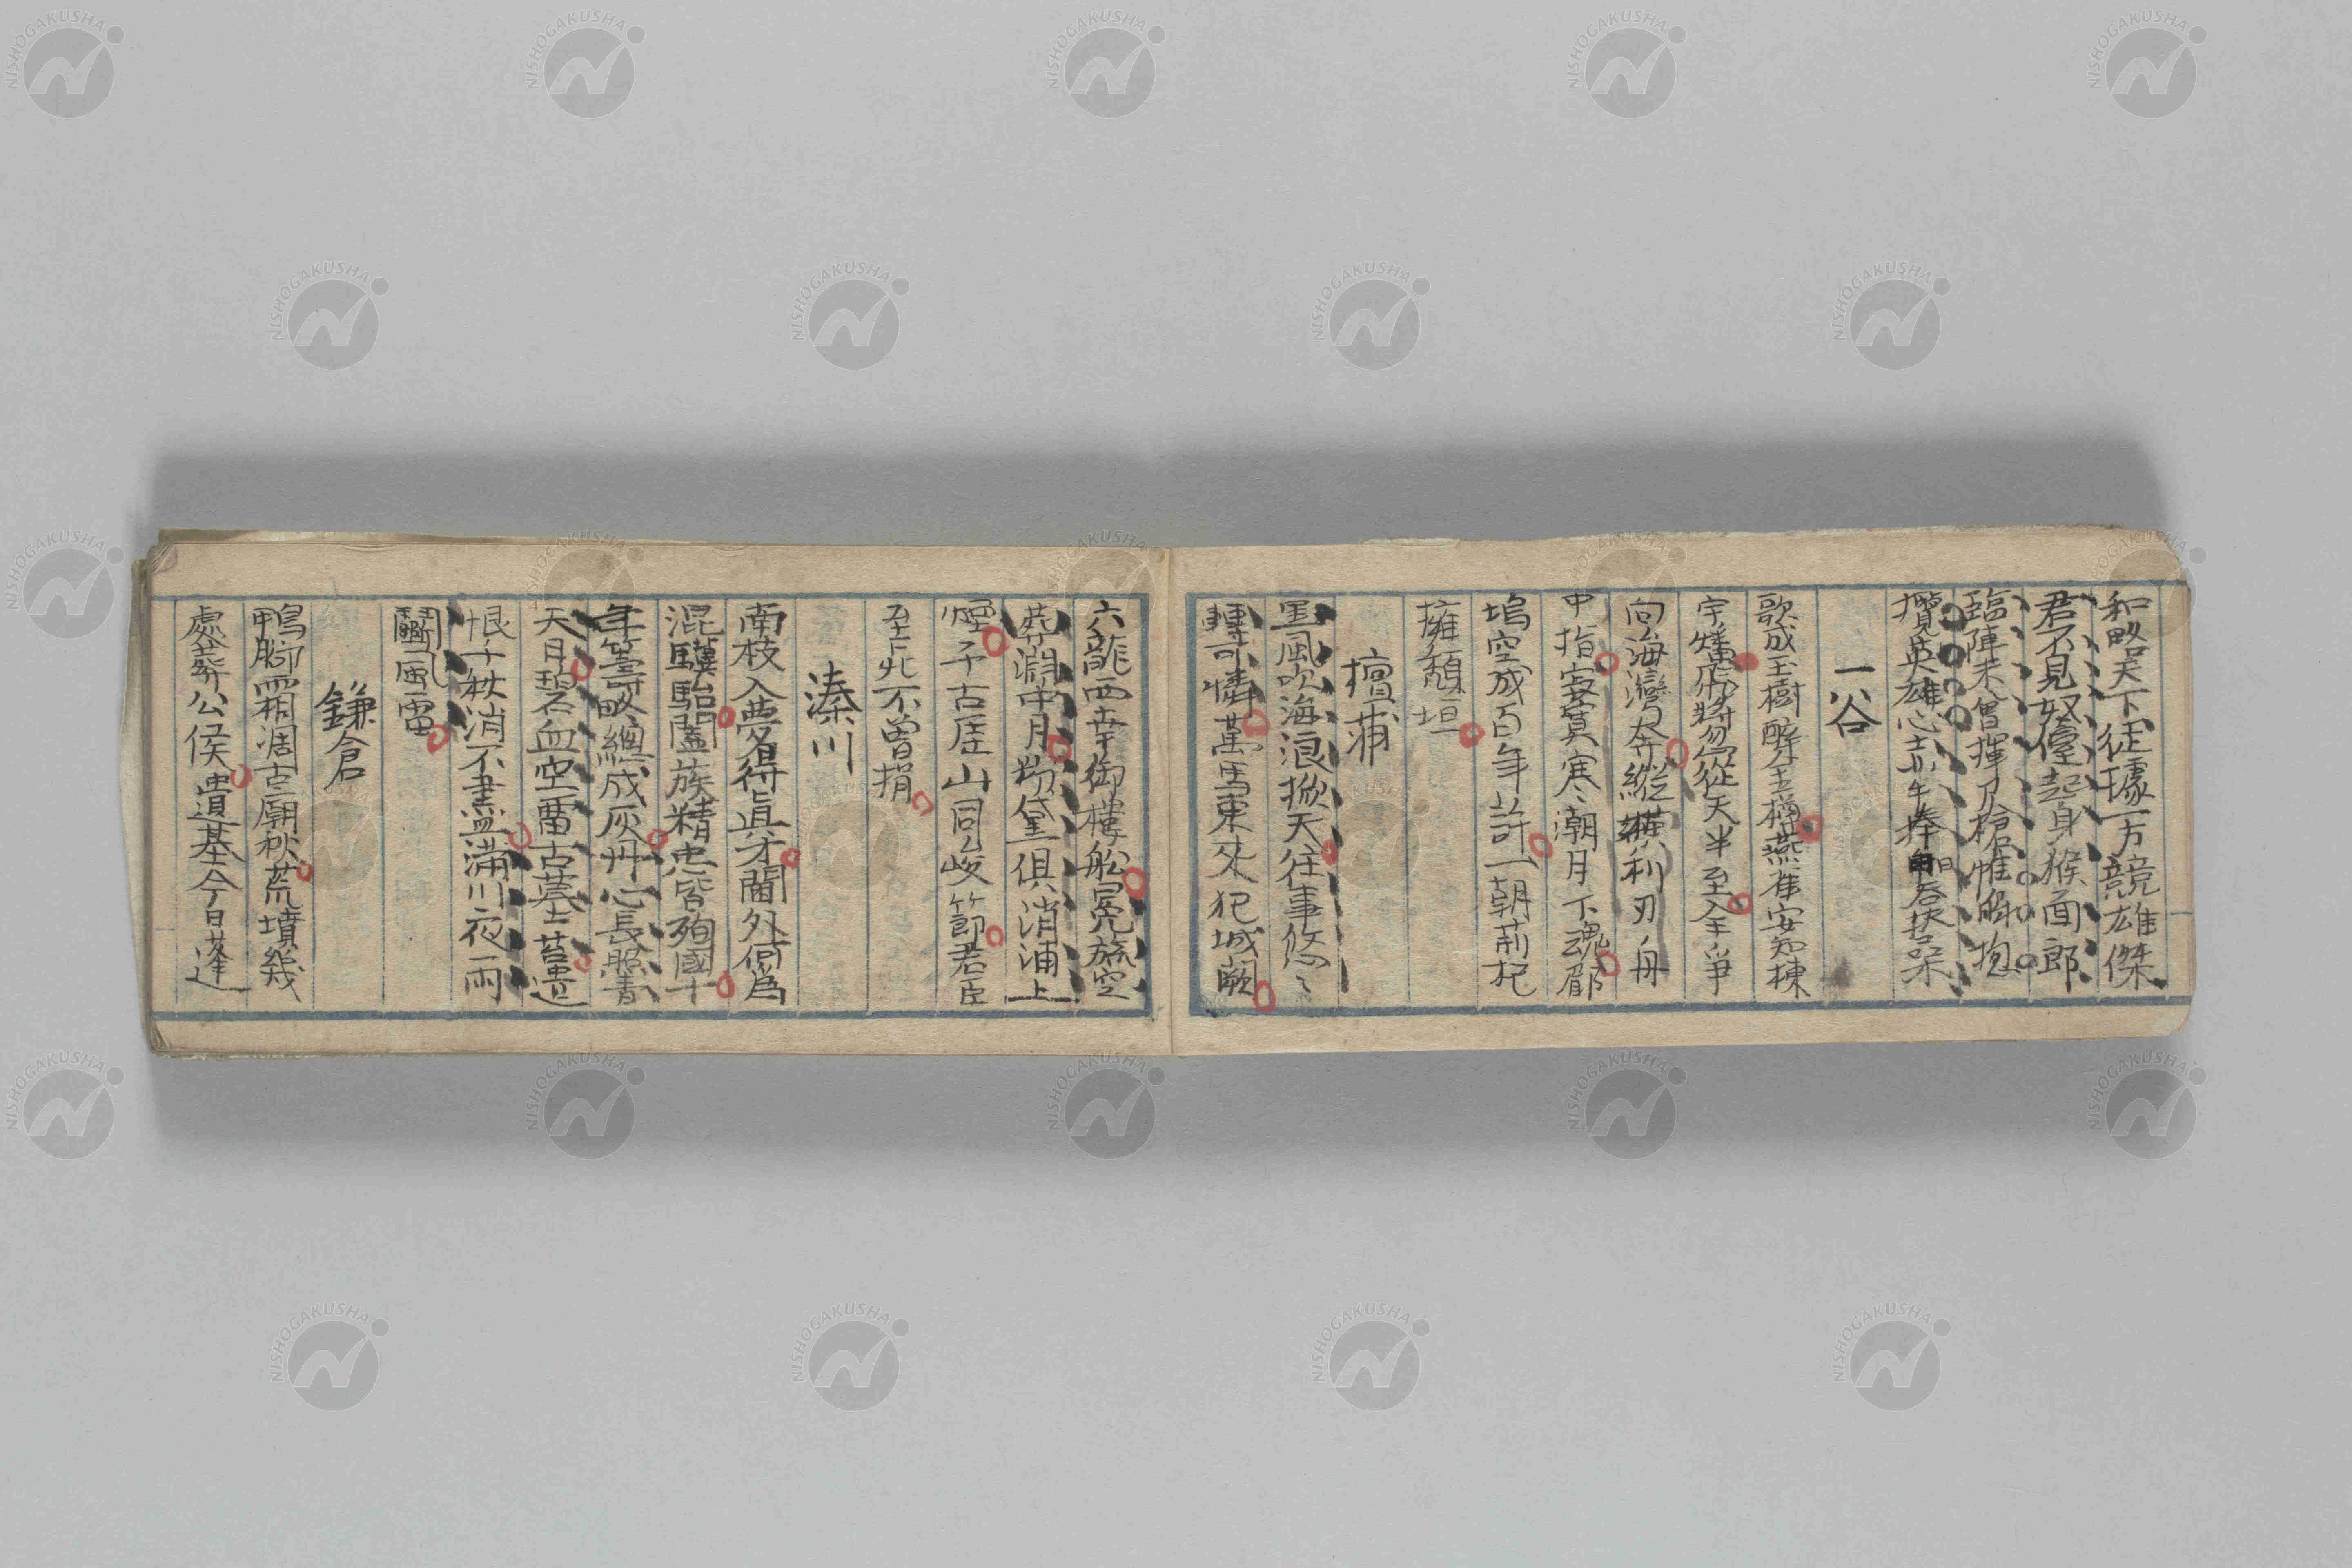 和略天下徒據一方競雄傑
君不見奴僮起身猴面郎
臨陣未曾揮刀槍惟解抱
攬英雄心
一谷
歌成玉樹醉金樽燕雀安知棟
宇燔飛將忽從天半至全爭
向海灣奔縱橫利刃舟
中指寂寞寒潮月下魂郿
塢空成百年計一朝荊杞
擁頽垣
壇浦
黑風吹海浪掀天往事悠々
轉可憐萬馬東來犯城闕
六龍西幸御樓船冕旒空
葬淵中月粉黛俱消浦上
煙千古厓山同山峻節君臣
至此不曾捐
湊川
南枝入夢得真才閫外何爲
混驥駘闔族精忠皆殉國十
年籌畧總成灰丹心長照青
天月碧血空留古墓苔遺
恨千秋消不盡滿川夜雨
鬭風雷
鎌倉
鴨脚霜凋古廟秋荒墳幾
處葬公侯遺基今日蓬
NISHOGAKUSHA